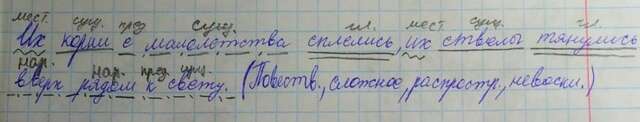 мест. сущ. пред. сущ. гл. мест. сущ. гл.
Их корни с малолетства сплелись, их стволы тянулись
нар. нар. пред. сущ.
вверх рядом к свету. (Повеств., сложное, распростр., невоскл.)